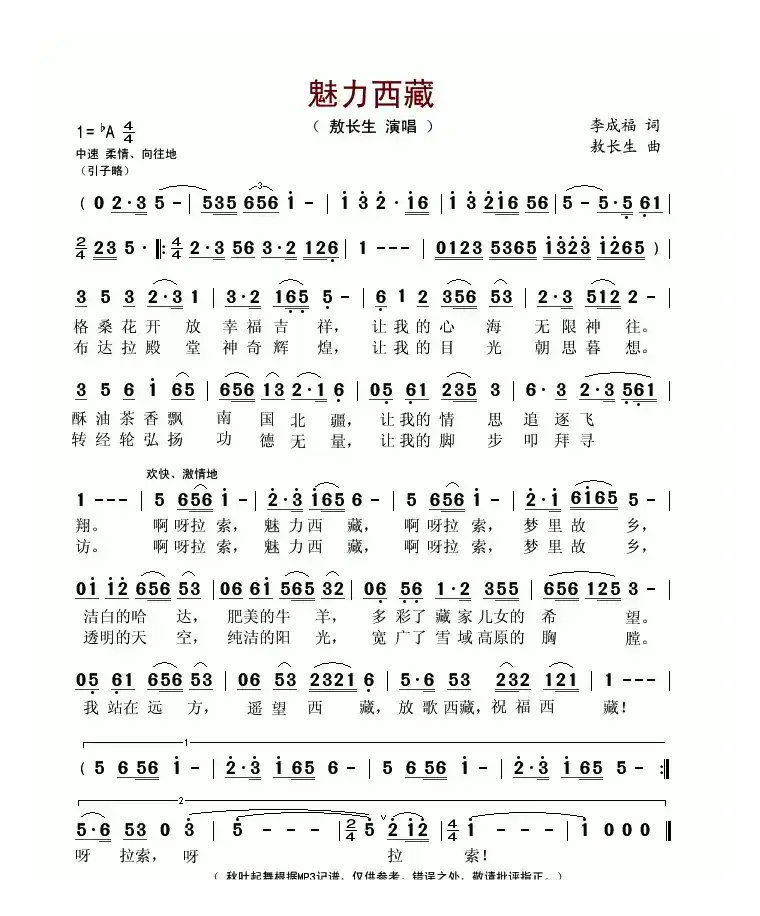 魅力西藏
（ 敖长生 演唱 ）
1=♭A 4/4
李成福 词
敖长生 曲
中速 柔情、向往地
（引子略）
（ 0 2·3 5 - | 535 656 i - | i 3 2 · i6 | i 3 2i6 56 | 5 - 5·5 61 |
2/4 23 5 · |: 4/4 2·3 56 3·2 126 | 1 - - - | 0123 5365 i323 i265 ）|
3 5 3 2·3 1 | 3·2 165 5 - | 6 1 2 356 53 | 2·3 512 2 - |
格桑花开 放 幸福吉 祥， 让我的心 海 无限神 往。
布达拉殿 堂 神奇辉 煌， 让我的目 光 朝思暮 想。
3 5 6 i 65 | 656 i3 2·i 6 | 05 61 235 3 | 6·3 2·3561 |
酥油茶香飘 南 国 北 疆， 让我的情 思 追 逐飞
转经轮弘扬 功 德 无 量， 让我的脚 步 叩 拜寻
欢快、激情地
1 - - - | 5 656 i - | 2·3 i65 6 - | 5 656 i - | 2·i 6i65 5 - |
翔。 啊 呀拉 索， 魅 力西 藏， 啊 呀拉 索， 梦 里 故 乡，
访。 啊 呀拉 索， 魅 力西 藏， 啊 呀拉 索， 梦 里 故 乡，
0i i2 656 53 | 06 6i 565 32 | 06 56 1·2 355 | 656 125 3 - |
洁白的哈 达， 肥美的牛 羊， 多 彩了 藏家儿女的 希 望。
透明的天 空， 纯洁的阳 光， 宽 广了 雪域高原的 胸 膛。
05 61 656 53 | 06 53 2321 6 | 5·6 53 232 121 | 1 - - - |
我 站在 远 方， 遥 望 西 藏， 放 歌 西藏， 祝 福 西 藏！
1
（ 5 656 i - | 2·3 i65 6 - | 5 656 i - | 2·3 i65 5 - :|
2
5·6 53 0 3 | 5 - - - | 2/4 5 ∨ 2i2 | 4/4 i - - - | i 0 0 0 |
呀 拉索， 呀 拉 索！
（ 秋叶起舞根据MP3记谱，仅供参考，错误之处，敬请批评指正。）